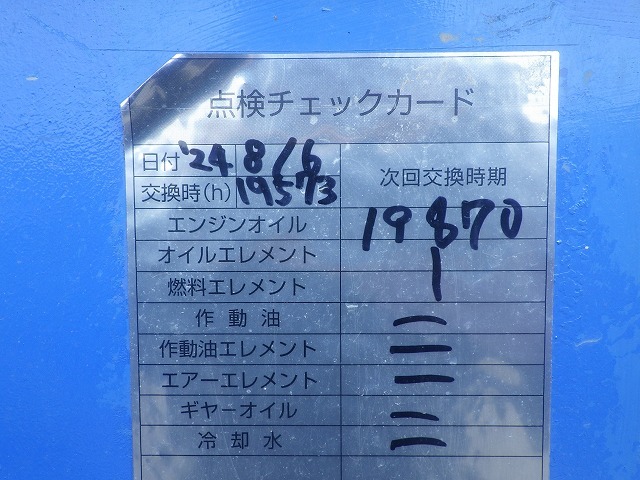 点検チェックカード
日付 '24 8/6
交換時(h) 19573
次回交換時期
エンジンオイル 19870
オイルエレメント |
燃料エレメント
作動油 —
作動油エレメント —
エアーエレメント —
ギヤーオイル —
冷却水 —